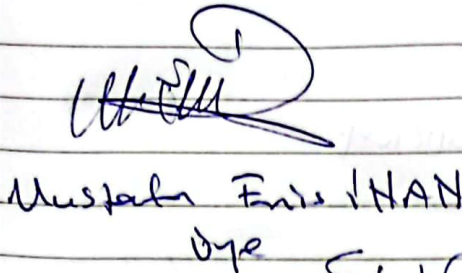 Mustafa Enis İNAN
üye